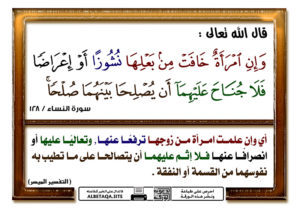 قال الله تعالى :
وَإِنِ ٱمْرَأَةٌ خَافَتْ مِنۢ بَعْلِهَا نُشُوزًا أَوْ إِعْرَاضًا
فَلَا جُنَاحَ عَلَيْهِمَآ أَن يُصْلِحَا بَيْنَهُمَا صُلْحًا ۚ
سورة النساء / ١٢٨
أي وإن علمت امرأة من زوجها ترفعًا عنها، وتعاليًا عليها أو
انصرافًا عنها فلا إثم عليهما أن يتصالحا على ما تطيب به
نفوسهما من القسمة أو النفقة .
(التفسير الميسر)
ALBETAQA.SITE